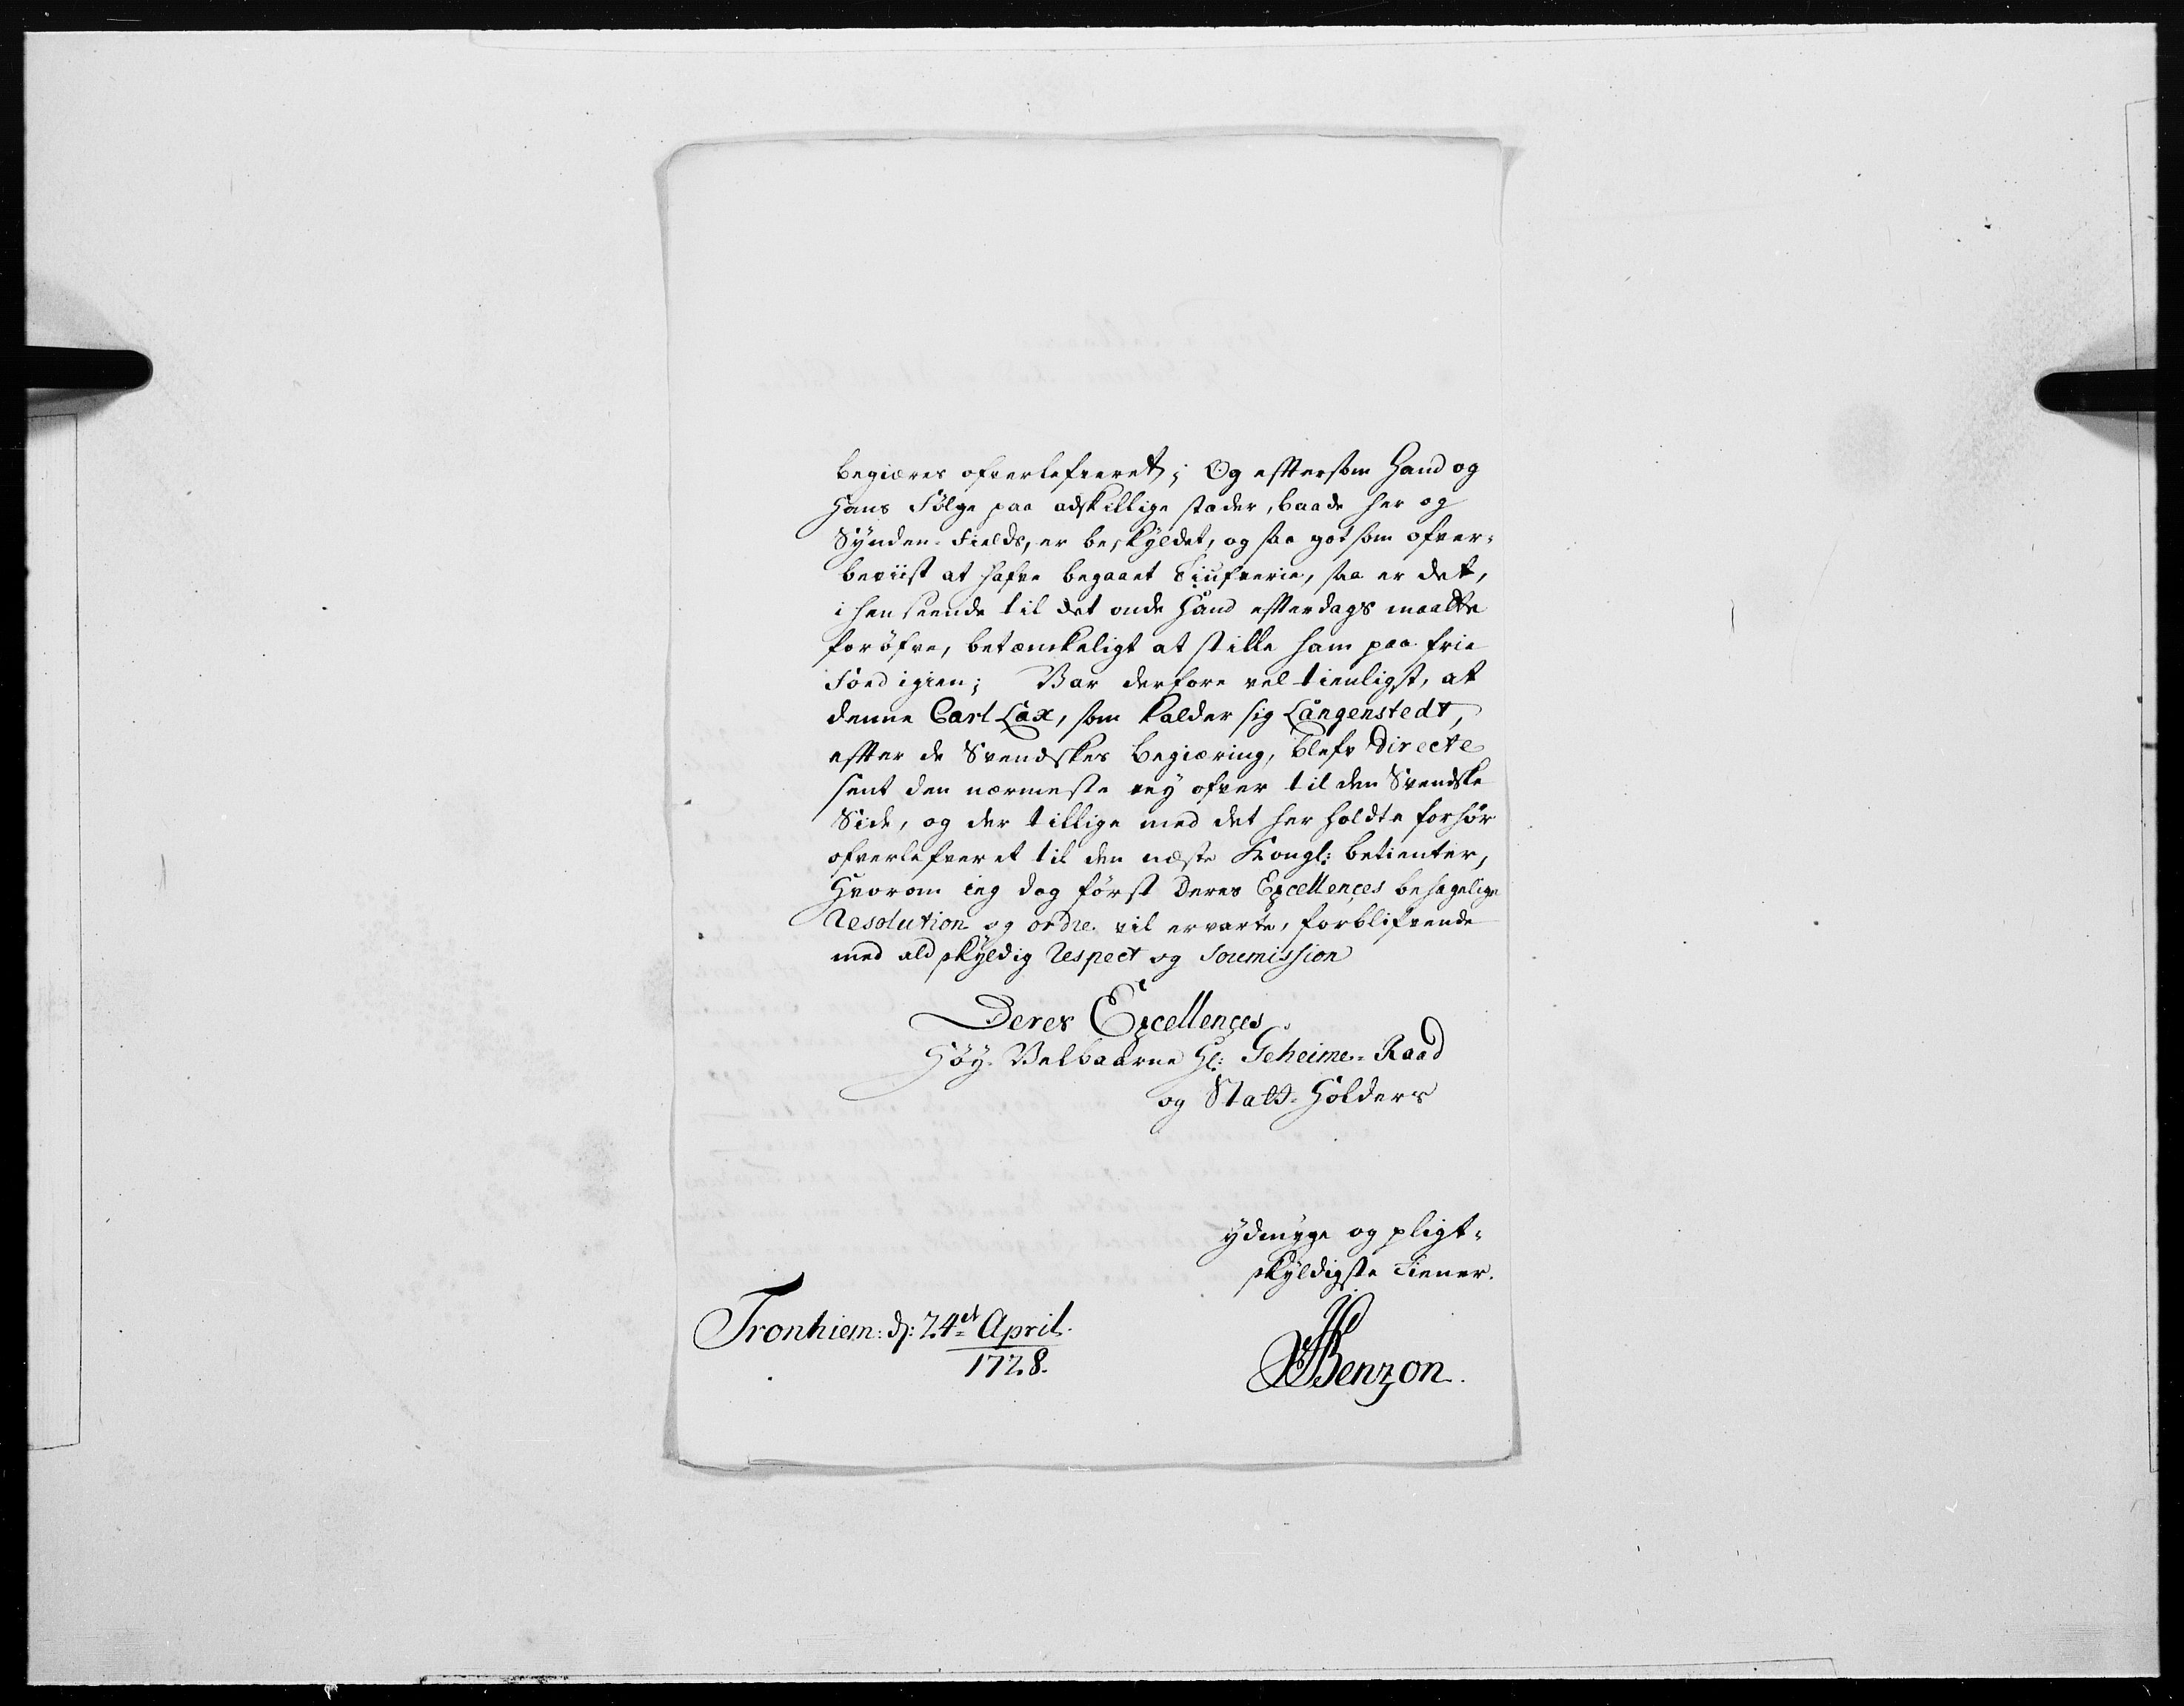 begiæres ofverlefveret; Og eftersom Hand og
Hans Følge paa adskillige stæder, baade her og
Synden-Fields, er beskyldet, og saa got som ofver-
beviist at hafve begaaet Tiufverie, saa er det,
i henseende til det onde Hand efterdags maatte
forøfve, betænkeligt at stille ham paa frie
Foed igien; Var derfore vel tienligst, at
denne Carl Lax, som kalder sig Långenstedt,
efter de Svendskes begiæring, blefv directe
sent den nærmeste vey ofver til den Svendske
Side, og der tillige med det her holdte forhør
ofverlefveret til den næste Kongl: betienter,
Hvorom ieg dog først Deres Excellences behagelige
Resolution og ordre vil ervarte, forblifvende
med ald skyldig Respect og Soumission
Deres Excellences
Høy-Velbaarne Hr: Geheime-Raad
og Stats-Holders
ydmyge og pligt-
skyldigste Tiener.
Tronhiem: d: 24et April
1728.
Benzon.